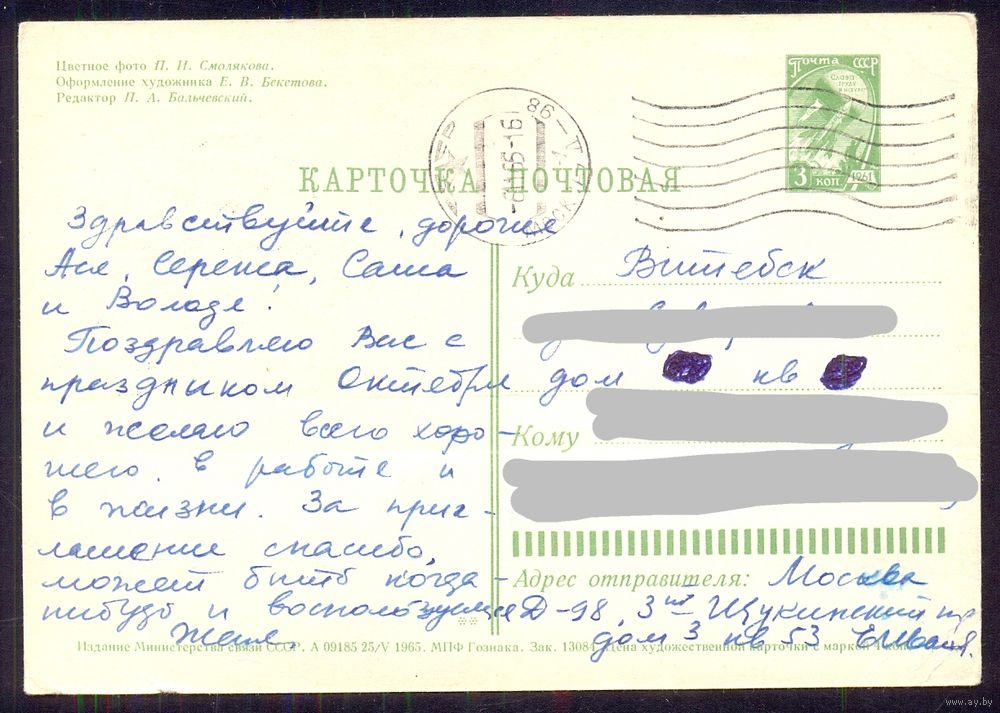 Цветное фото П. И. Смолякова.
Оформление художника Е. В. Бекетова.
Редактор П. А. Бальчевский.
Почта СССР
Слава труду и науке
3 коп 1961
КАРТОЧКА ПОЧТОВАЯ
Здравствуйте, дорогие
Ася, Сережа, Саша
и Володя!
Поздравляю Вас с
праздником Октября
и желаю всего хоро-
шего в работе и
в жизни. За приг-
лашение спасибо,
может быть когда-
нибудь и воспользуемся
Женя
Куда Витебск
дом кв
Кому
Адрес отправителя: Москва
Д-98, 3ий Щукинский пр
дом 3 кв 53
Издание Министерства связи СССР. А 09185 25/V 1965. МПФ Гознака. Зак. 13084. Цена художественной карточки с маркой 4 коп.
www.ay.by